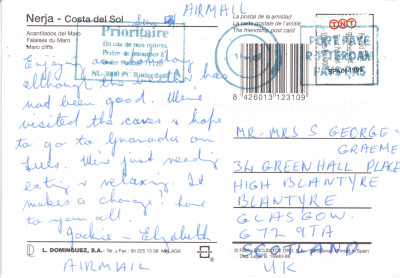 AIRMAIL
Nerja - Costa del Sol
Acantilados del Maro
Falaises du Maro
Maro cliffs
La postal de la amistad
La carte postale de l'amitié
The friendship post card
TNT
SPAIN
Prioritaire
En cas de non remise
Prière de retourner à
Rotterdam
PORT PAYÉ
ROTTERDAM
PAYS-BAS
8 426013 123109
Enjoying our holiday
although the weather has
not been good. We've
visited the caves & hope
to go to Granada on
Tues. We're just reading
eating & relaxing. It
makes a change! Love
to you all.
Jackie - Elizabeth
MR. MRS S GEORGE-
GRAEME
34 GREENHALL PLACE
HIGH BLANTYRE
BLANTYRE
GLASGOW.
G72 9TA
SCOTLAND
UK
L. DOMINGUEZ, S.A. - Tel. y Fax.: 95 225 13 58 - MALAGA
AIRMAIL